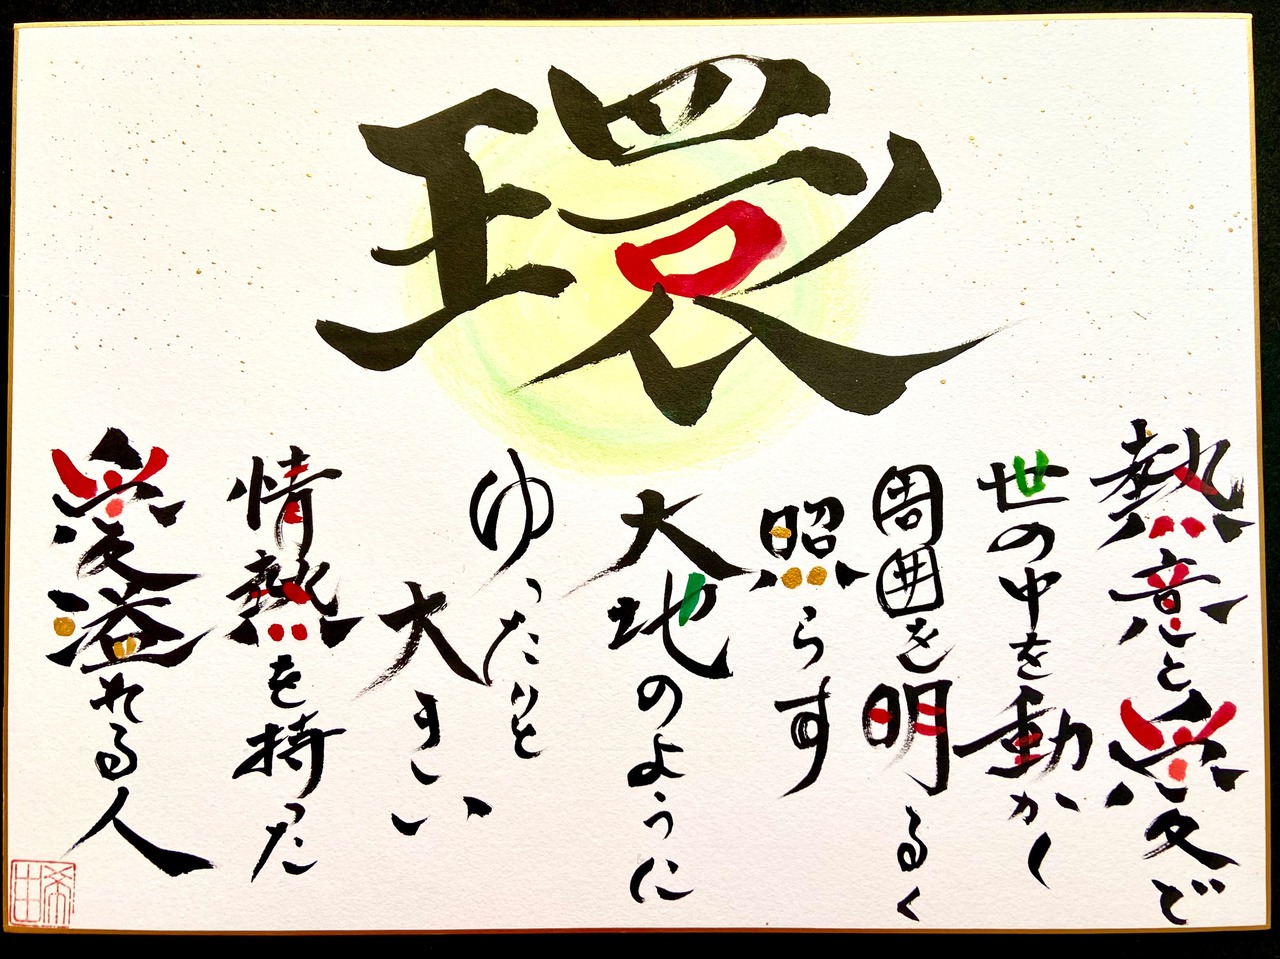 環
熱意と愛で
世の中を動かく
周囲を明るく
照らす
大地のように
ゆったりと
大きい
情熱を持った
愛溢れる人